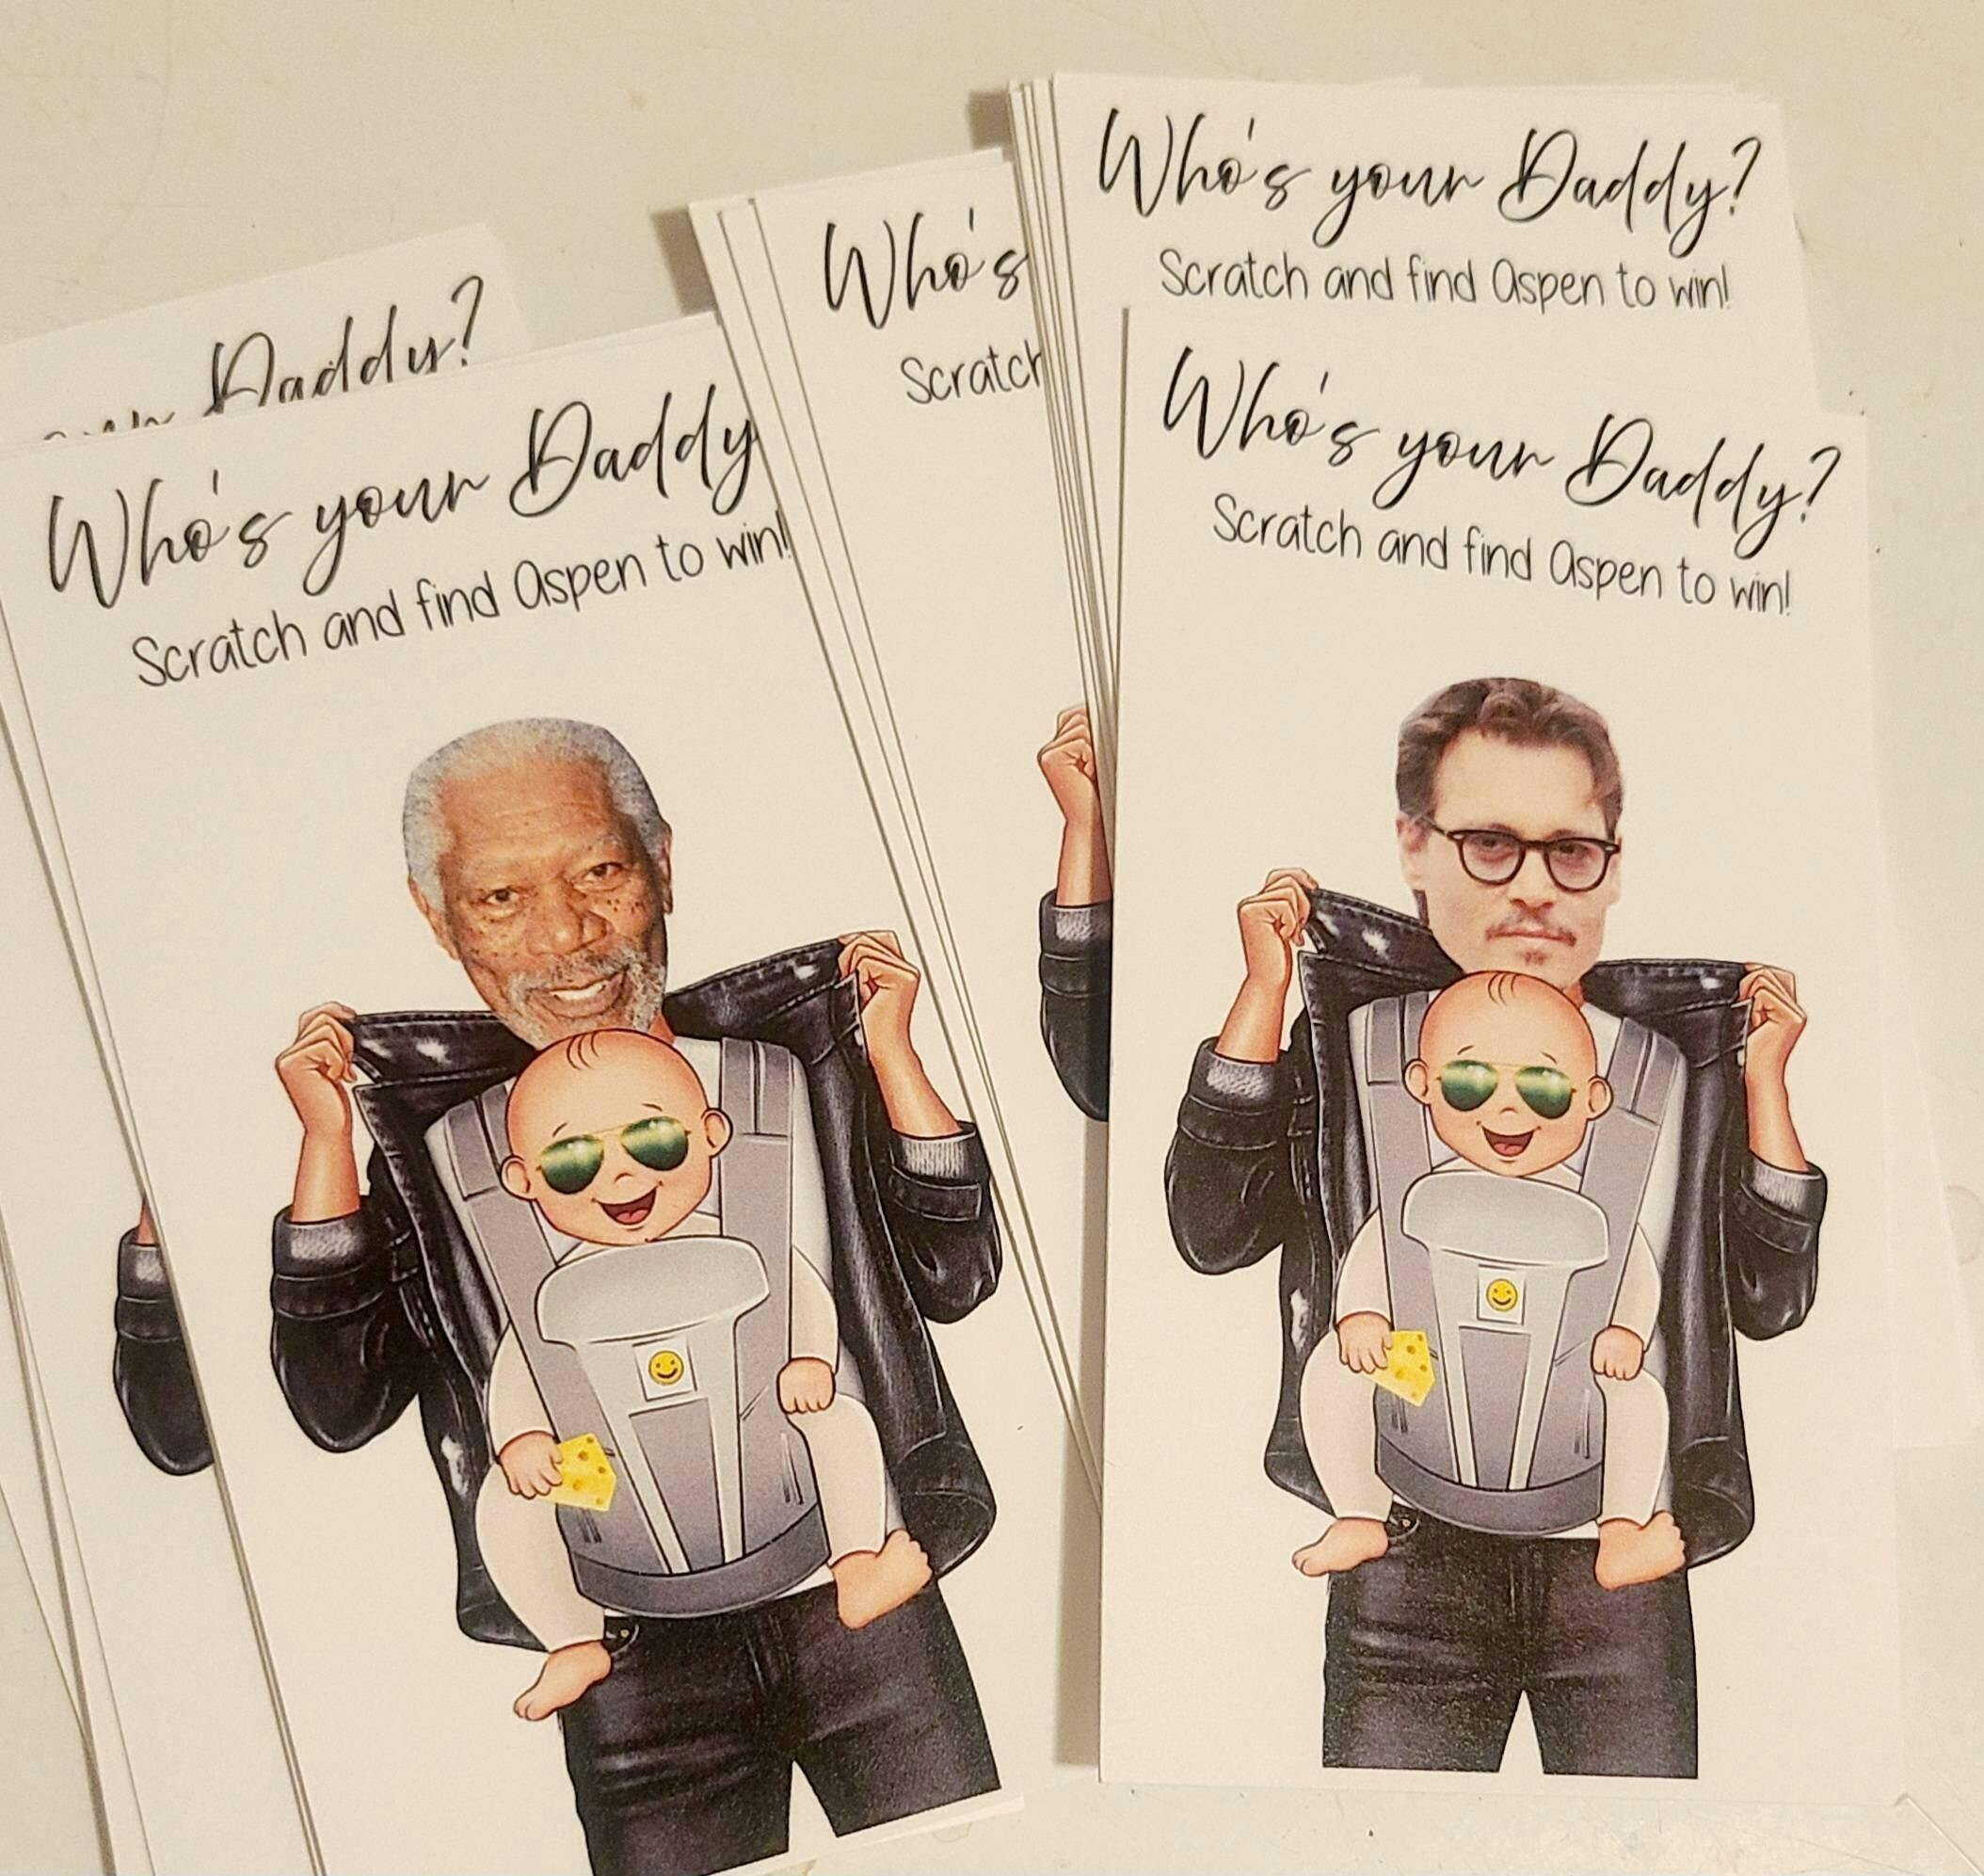 Daddy?
Who's your Daddy
Scratch and find Aspen to win!
Who's
Scratch
Who's your Daddy?
Scratch and find Aspen to win!
Who's your Daddy?
Scratch and find Aspen to win!